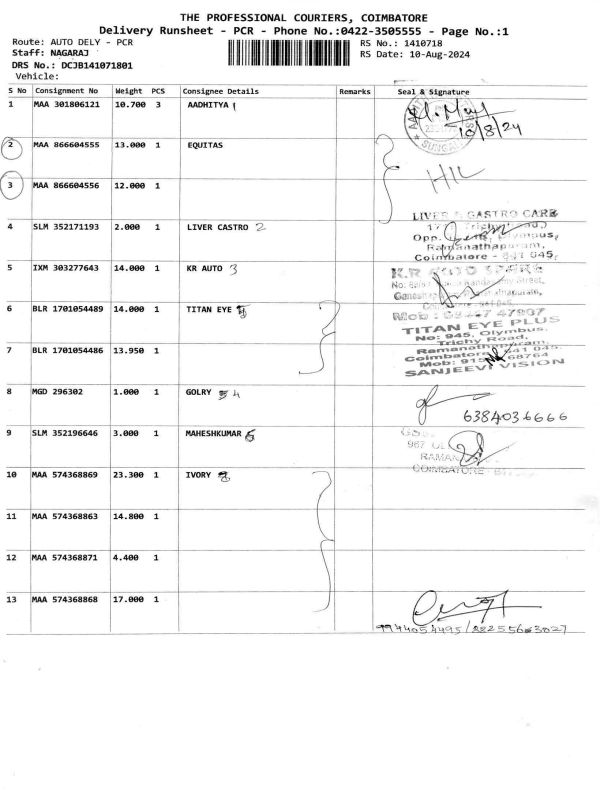 THE PROFESSIONAL COURIERS, COIMBATORE
Delivery Runsheet - PCR - Phone No.:0422-3505555 - Page No.:1
Route: AUTO DELY - PCR
RS No.: 1410718
Staff: NAGARAJ
RS Date: 10-Aug-2024
DRS No.: DCJB141071801
Vehicle:
S No Consignment No Weight PCS Consignee Details Remarks Seal & Signature
1 MAA 301806121 10.700 3 AADHITYA 1
10/8/24
2 MAA 866604555 13.000 1 EQUITAS
3 MAA 866604556 12.000 1
LIVER & GASTRO CARE
4 SLM 352171193 2.000 1 LIVER CASTRO 2
Opp. Olympus,
Ramanathapuram,
Coimbatore - 641 045.
5 IXM 303277643 14.000 1 KR AUTO 3
K.R AUTO
6 BLR 1701054489 14.000 1 TITAN EYE
Mob : 47907
TITAN EYE PLUS
No: 945, Olympus.
Trichy Road,
7 BLR 1701054486 13.950 1
Ramanathapuram,
Coimbatore 641 045.
Mob: 68764
SANJEEVI VISION
8 MGD 296302 1.000 1 GOLRY 4
6384036666
9 SLM 352196646 3.000 1 MAHESHKUMAR
RAMAN
COIMBATORE
10 MAA 574368869 23.300 1 IVORY
11 MAA 574368863 14.800 1
12 MAA 574368871 4.400 1
13 MAA 574368868 17.000 1